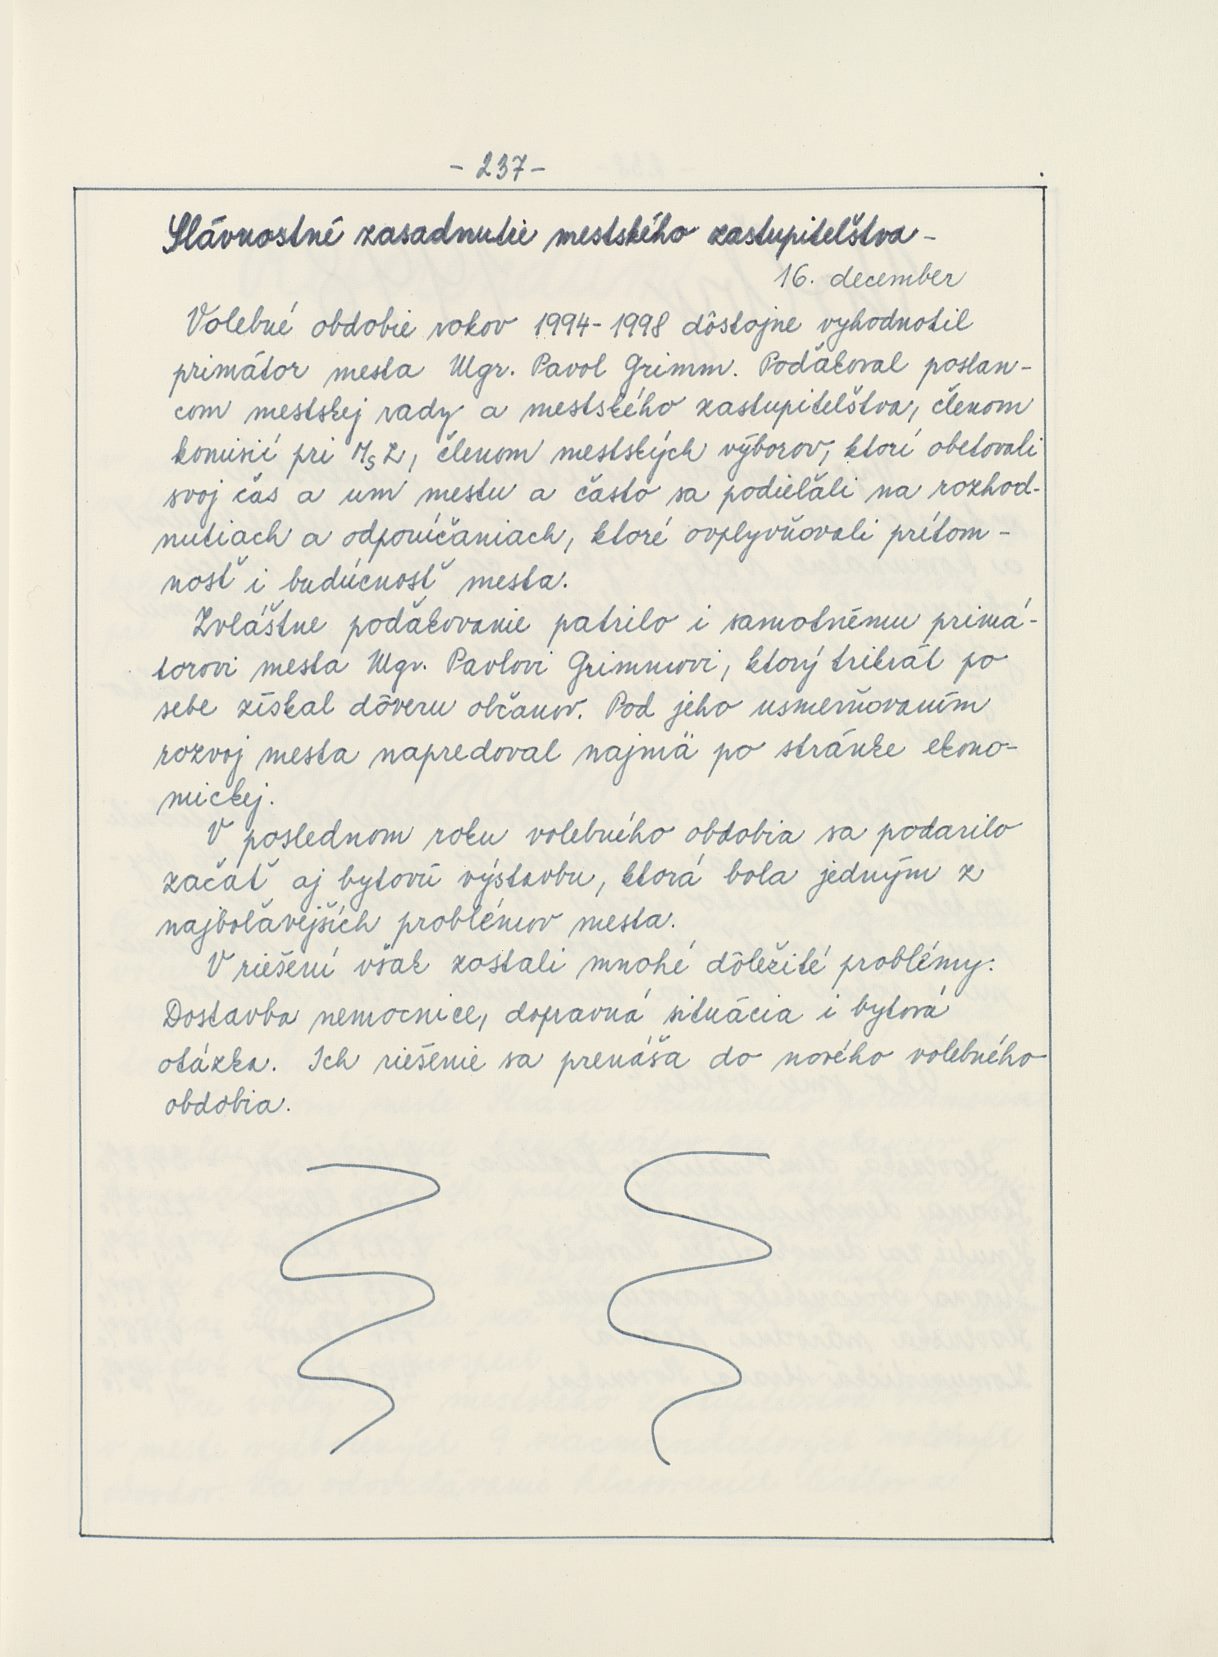 - 237 -
Slávnostné zasadnutie mestského zastupiteľstva -
16. december
Volebné obdobie rokov 1994-1998 dôstojne vyhodnotil
primátor mesta Mgr. Pavol Grimm. Poďakoval poslan-
com mestskej rady a mestského zastupiteľstva, členom
komisií pri MsZ, členom mestských výborov, ktorí obetovali
svoj čas a um mestu a často sa podieľali na rozhod-
nutiach a odporúčaniach, ktoré ovplyvňovali prítom-
nosť i budúcnosť mesta.
Zvláštne poďakovanie patrilo i samotnému primá-
torovi mesta Mgr. Pavlovi Grimmovi, ktorý trikrát po
sebe získal dôveru občanov. Pod jeho usmerňovaním
rozvoj mesta napredoval najmä po stránke ekono-
mickej.
V poslednom roku volebného obdobia sa podarilo
začať aj bytovú výstavbu, ktorá bola jedným z
najboľavejších problémov mesta.
V riešení však zostali mnohé dôležité problémy:
Dostavba nemocnice, dopravná situácia i bytová
otázka. Ich riešenie sa prenáša do nového volebného
obdobia.